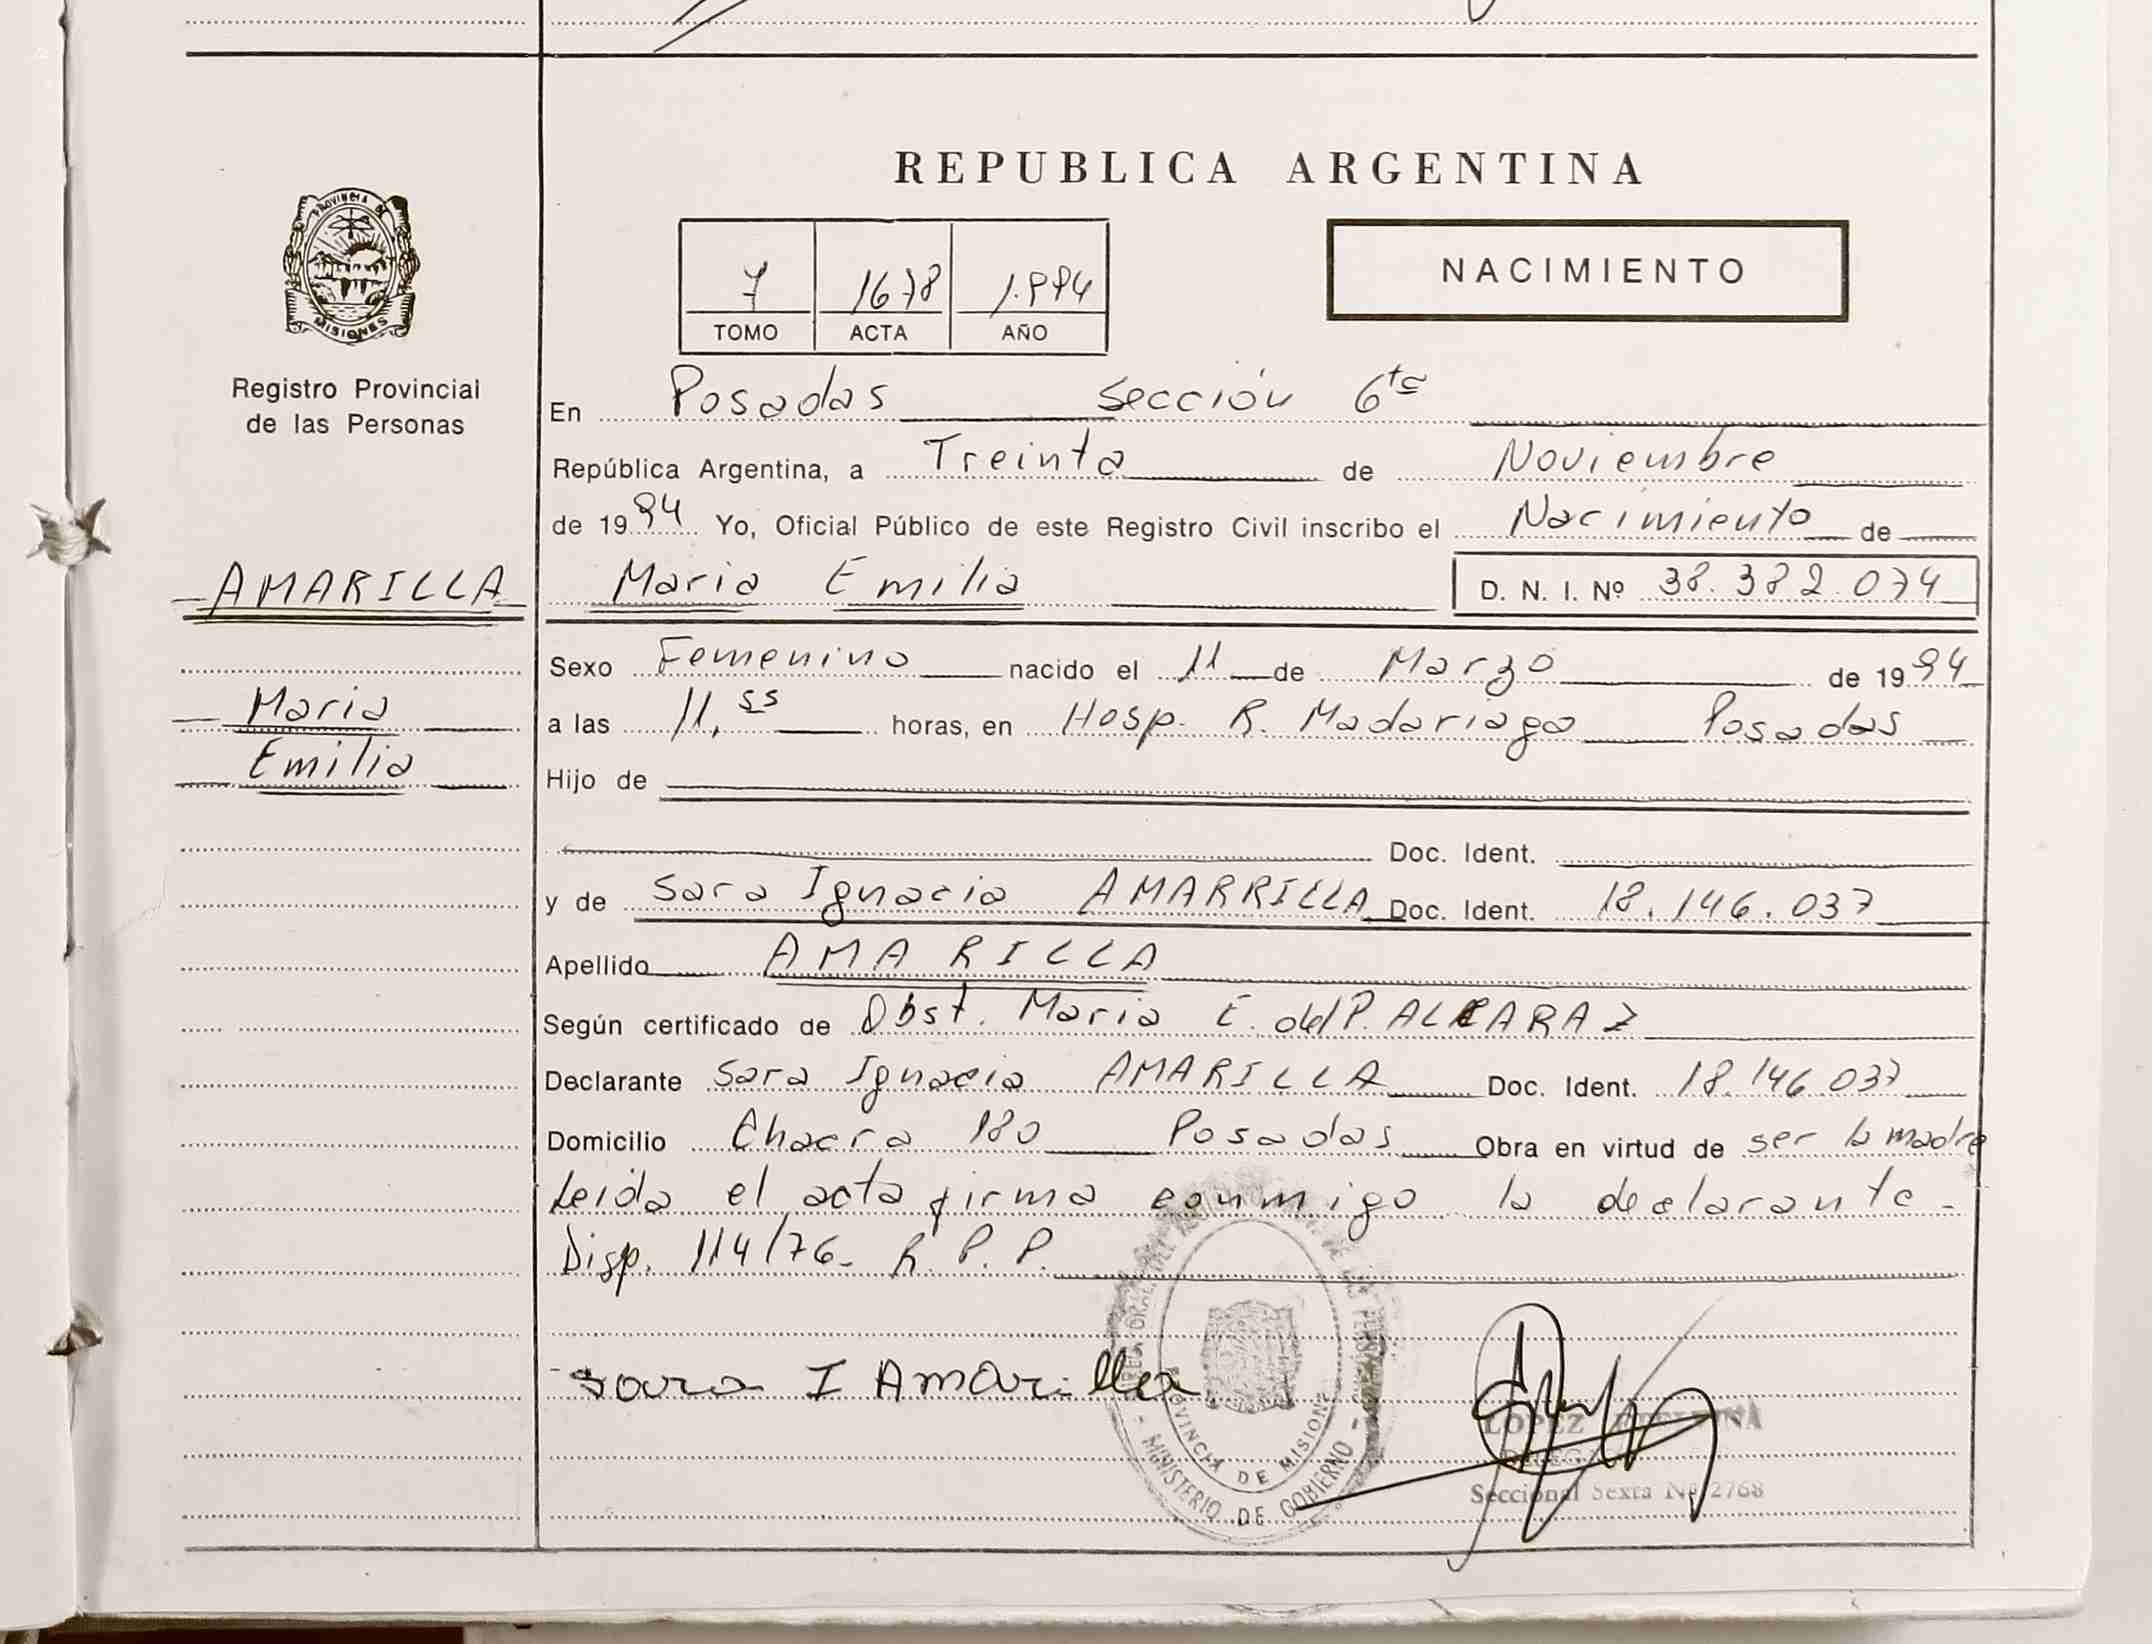 REPUBLICA ARGENTINA
PROVINCIA DE
MISIONES
Registro Provincial
de las Personas
7 1678 1.994
TOMO ACTA AÑO
NACIMIENTO
En Posadas Sección 6ta
República Argentina, a Treinta de Noviembre
de 1994 Yo, Oficial Público de este Registro Civil inscribo el Nacimiento de
AMARILLA Maria Emilia D. N. I. Nº 38.382.074
Sexo Femenino nacido el 11 de Marzo de 1994
Maria
a las 11,55 horas, en Hosp. R. Madariaga Posadas
Emilia
Hijo de
Doc. Ident.
y de Sara Ignacia AMARRILLA Doc. Ident. 18.146.037
Apellido AMARILLA
Según certificado de Obst. Maria E. del P. ALCARAZ
Declarante Sara Ignacia AMARILLA Doc. Ident. 18.146.037
Domicilio Chacra 180 Posadas Obra en virtud de ser la madre
Leida el acta firma conmigo la declarante -
Disp. 114/76- R. P. P.
Sara I Amarilla
PROVINCIA DE MISIONES
- MINISTERIO DE GOBIERNO -
LOPEZ
Seccional Sexta Nº 2768